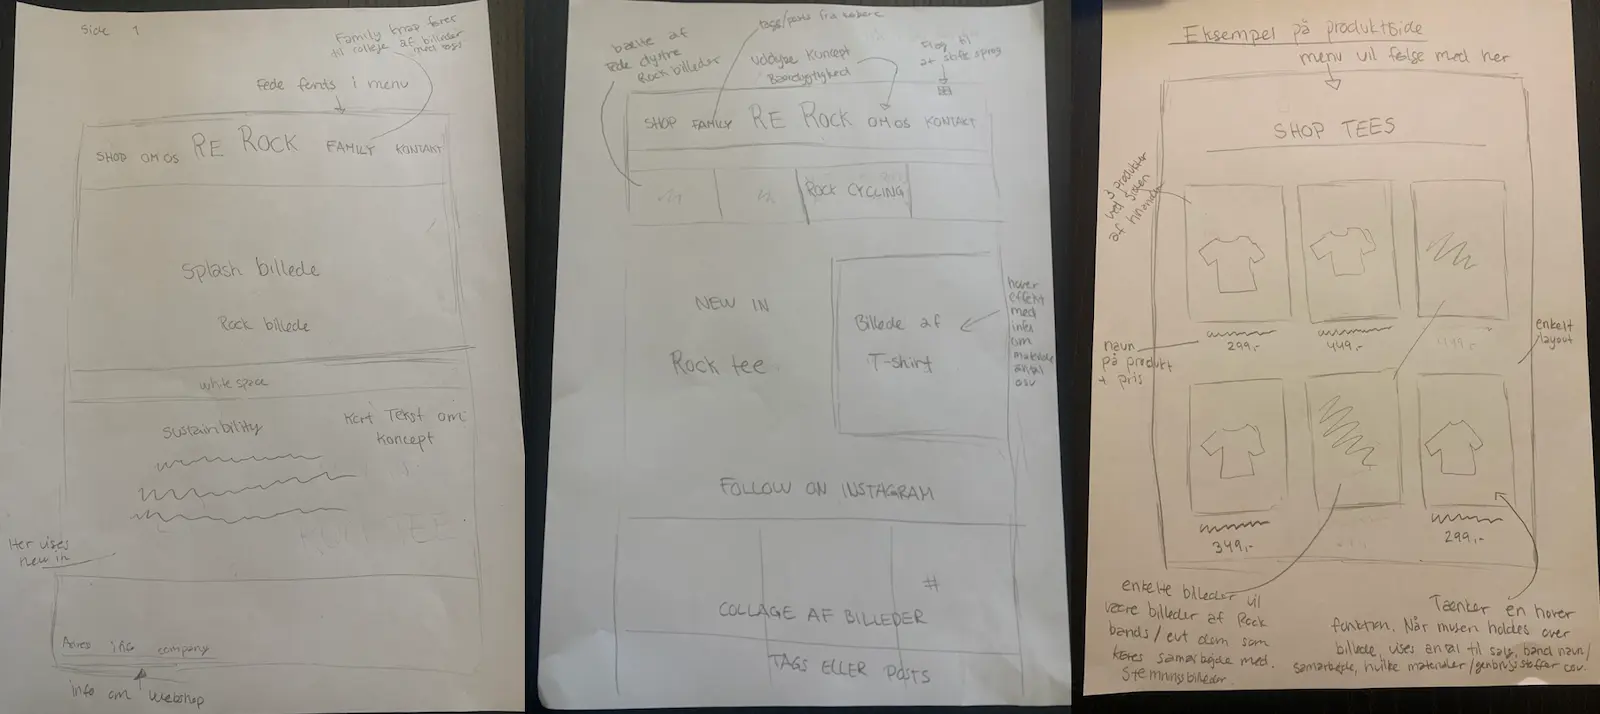 Side 1
Family knap fører
til collage af billeder
med tags
Fede fonts i menu
SHOP OM OS RE ROCK FAMILY KONTAKT
Splash billede
Rock billede
white space
Sustainbility
Kort Tekst om
koncept
Her vises
new in
info company
info om webshop
bælte af
fede dystre
Rock billeder
tags/posts fra købere
uddybe koncept
Bæredygtighed
Flag til
at skifte sprog
SHOP FAMILY RE ROCK OM OS KONTAKT
ROCK CYCLING
NEW IN
Rock tee
Billede af
T-shirt
hover
effekt
med
info
om
materiale
antal
osv
FOLLOW ON INSTAGRAM
#
COLLAGE AF BILLEDER
TAGS ELLER POSTS
Eksempel på produktside
menu vil følge med her
SHOP TEES
3 produkter
ved siden
af hinanden
navn
på produkt
+ pris
299,-
449,-
enkelt
layout
349,-
299,-
enkelte billeder vil
være billeder af Rock
bands/evt dem som
køres samarbejde med.
Stemningsbilleder.
Tænker en hover
funktion. Når musen holdes over
billede, vises antal til salg, band navn/
samarbejde, hvilke materialer/genbrugsstoffer osv.